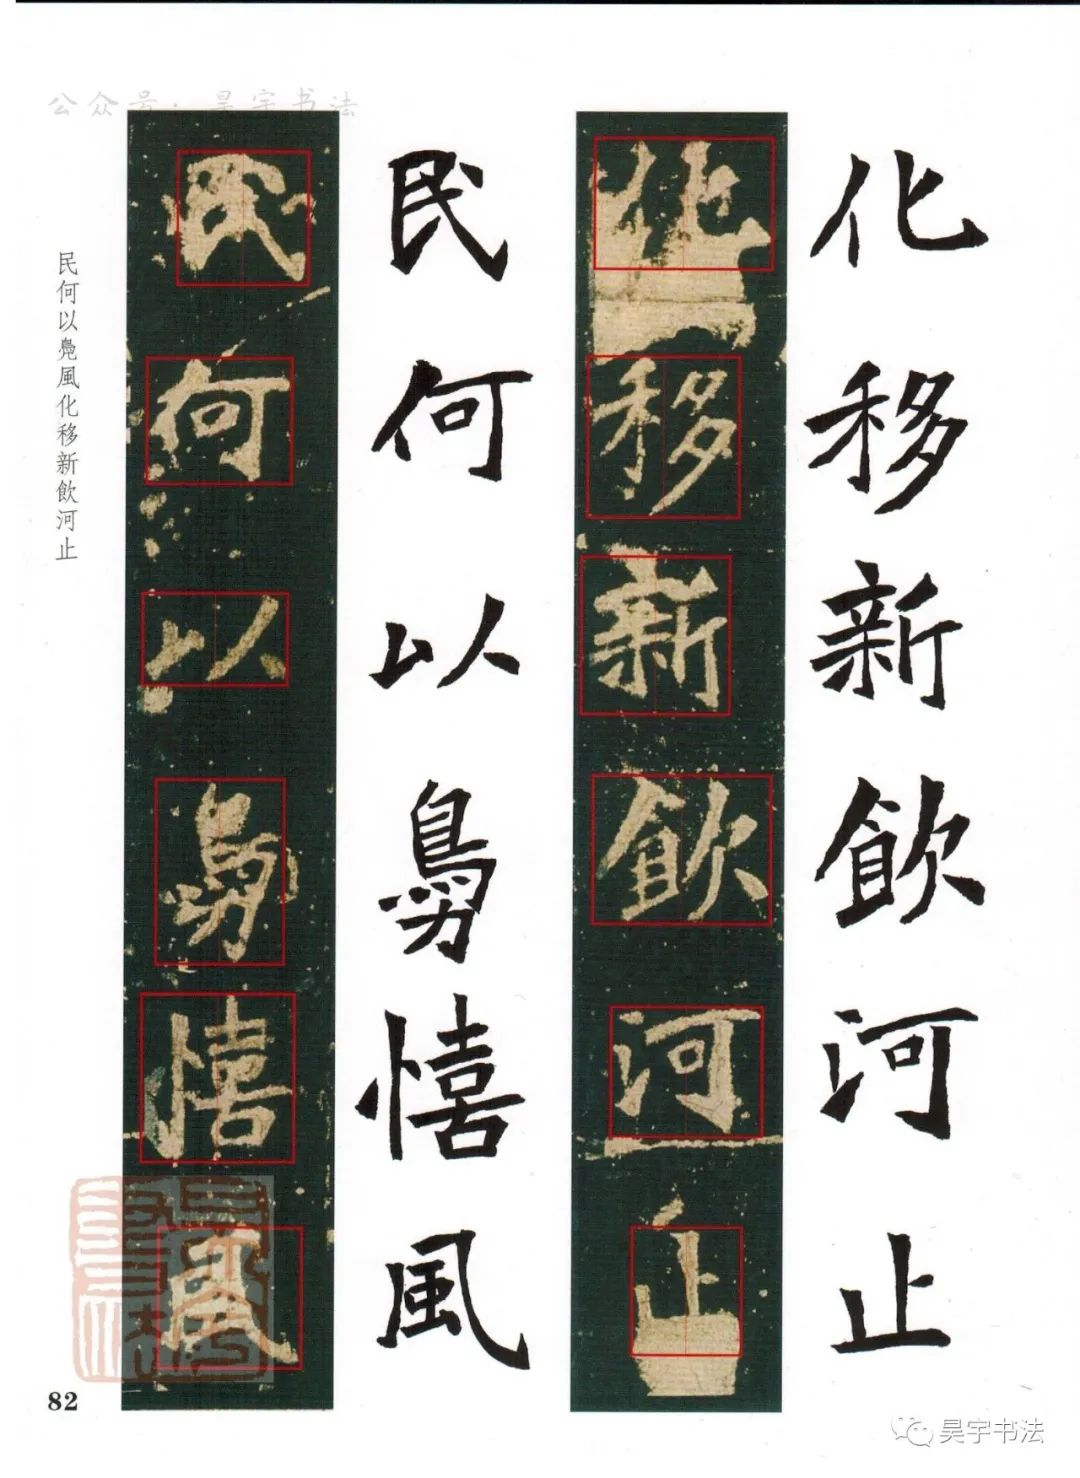 公众号·昊宇书法
民何以鳧風化移新飲河止
民何以憘風
民何以憘風
化移新飲河止
化移新飲河止
82
昊宇书法